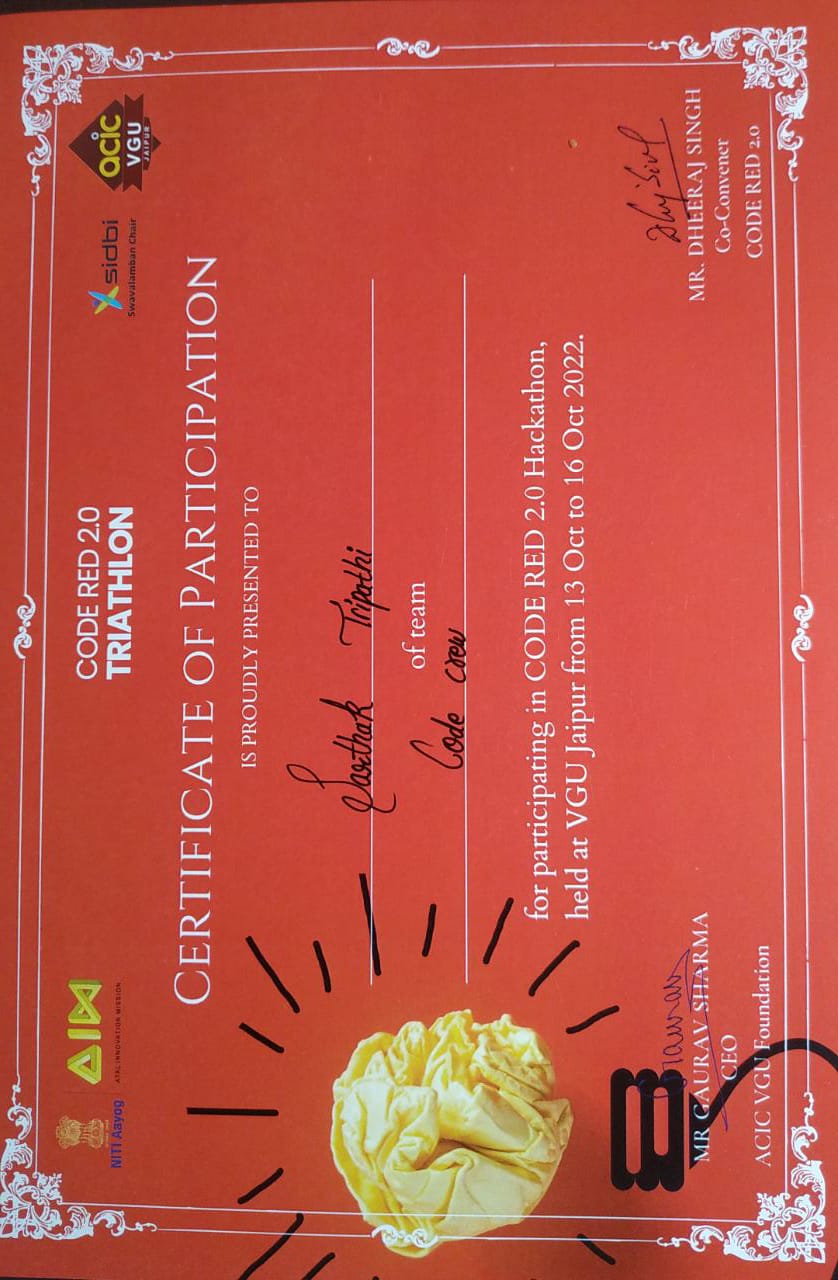 NITI Aayog
AIM
ATAL INNOVATION MISSION
CODE RED 2.0
TRIATHLON
sidbi
Swavalamban Chair
acic
VGU
JAIPUR
CERTIFICATE OF PARTICIPATION
IS PROUDLY PRESENTED TO
Sarthak Tripathi
of team
Code crew
for participating in CODE RED 2.0 Hackathon,
held at VGU Jaipur from 13 Oct to 16 Oct 2022.
MR GAURAV SHARMA
CEO
ACIC VGU Foundation
MR. DHEERAJ SINGH
Co-Convener
CODE RED 2.0